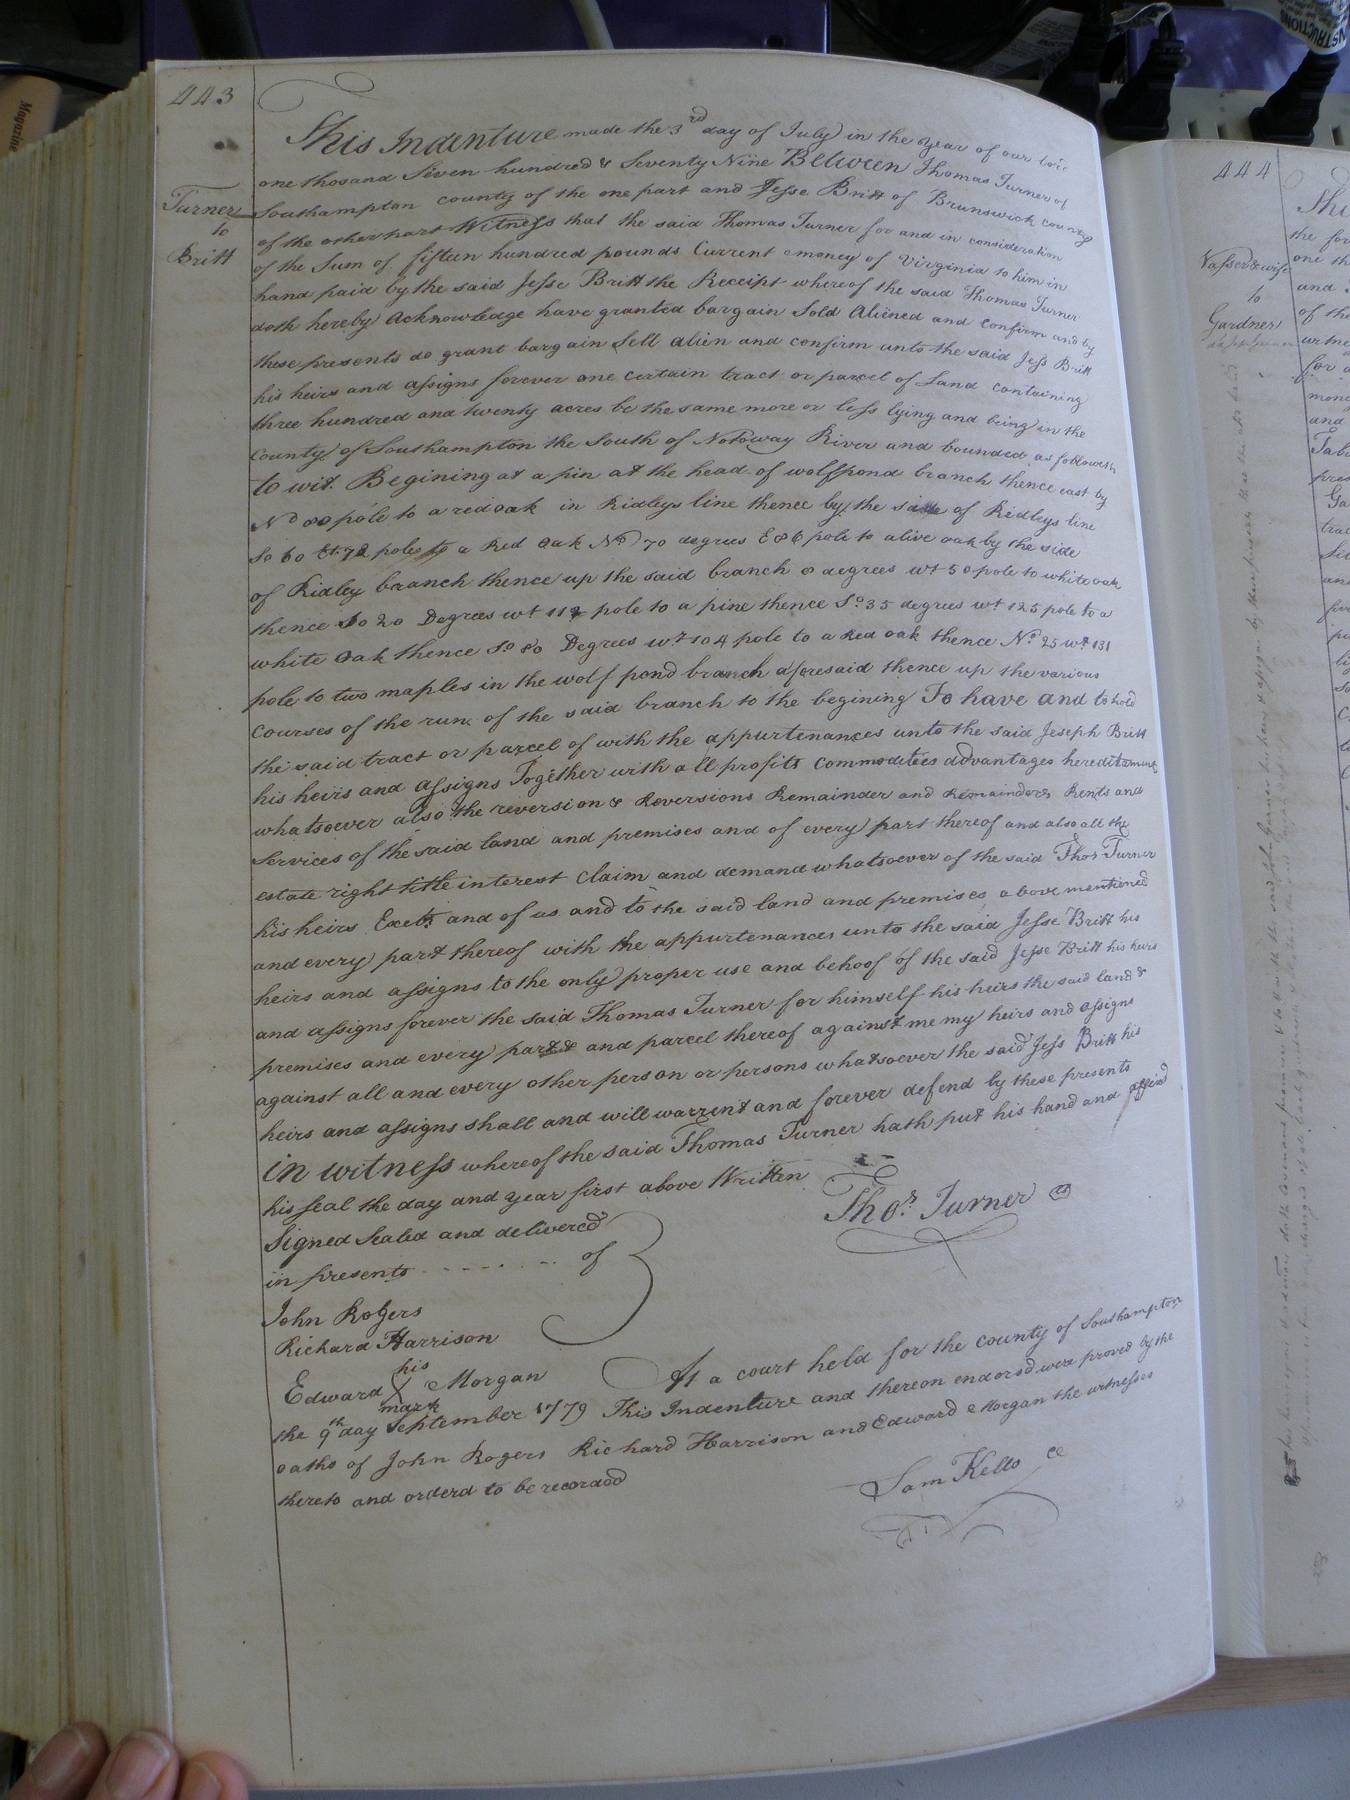 443
Turner
to
Britt
This Indenture made the 3rd day of July in the year of our Lord
one thosand Seven hundred & Seventy Nine Between Thomas Turner of
Southampton county of the one part and Jesse Britt of Brunswick county
of the other part Witness that the said Thomas Turner for and in consideration
of the Sum of fifteen hundred pounds Current money of Virginia to him in
hand paid by the said Jesse Britt the Receipt whereof the said Thomas Turner
doth hereby Acknowledge have granted bargain Sold Aliened and Confirm and by
these presents do grant bargain Sell alien and confirm unto the said Jess Britt
his heirs and assigns forever one certain tract or parcel of Land containing
three hundred and twenty acres be the same more or less lying and being in the
County of Southampton the South of Notoway River and bounded as followeth
to wit. Begining at a pin at the head of wolfpond branch thence east by
No 80 pole to a red oak in Ridleys line thence by the side of Ridleys line
So 60 Et. 72 poles to a Red Oak No 70 degrees E 86 pole to alive oak by the side
of Ridley branch thence up the said branch 8 degrees wt 50 pole to white oak
thence So 20 Degrees wt 112 pole to a pine thence So 35 degrees wt 125 pole to a
white Oak thence So 80 Degrees wt 104 pole to a Red oak thence No 25 wt 131
pole to two maples in the wolf pond branch aforesaid thence up the various
courses of the run of the said branch to the begining To have and to hold
the said tract or parcel of with the appurtenances unto the said Jeseph Britt
his heirs and assigns Together with all profits Commodities advantages hereditaments
whatsoever also the reversion & Reversions Remainder and Remainders Rents and
Services of the said land and premises and of every part thereof and also all the
estate right title interest Claim and demand whatsoever of the said Thos Turner
his heirs Exects and of us and to the said land and premises above mentioned
and every part thereof with the appurtenances unto the said Jesse Britt his
heirs and assigns to the only proper use and behoof of the said Jesse Britt his heirs
and assigns forever the said Thomas Turner for himself his heirs the said land &
premises and every part & and parcel thereof against me my heirs and assigns
against all and every other person or persons whatsoever the said Jess Britt his
heirs and assigns shall and will warrent and forever defend by these presents
in witness whereof the said Thomas Turner hath put his hand and affixd
his seal the day and year first above Written
Thos. Turner
Signed Sealed and delivered
in presents - - - - - - - of
John Rogers
Richard Harrison
his
Edward X Morgan
mark
At a court held for the county of Southampton
the 9th day September 1779 This Indenture and thereon endorsd were proved by the
oaths of John Rogers Richard Harrison and Edward Morgan the witnesses
thereto and orderd to be recorded
Sam Kello CC
444
Vasser & wife
to
Gardner